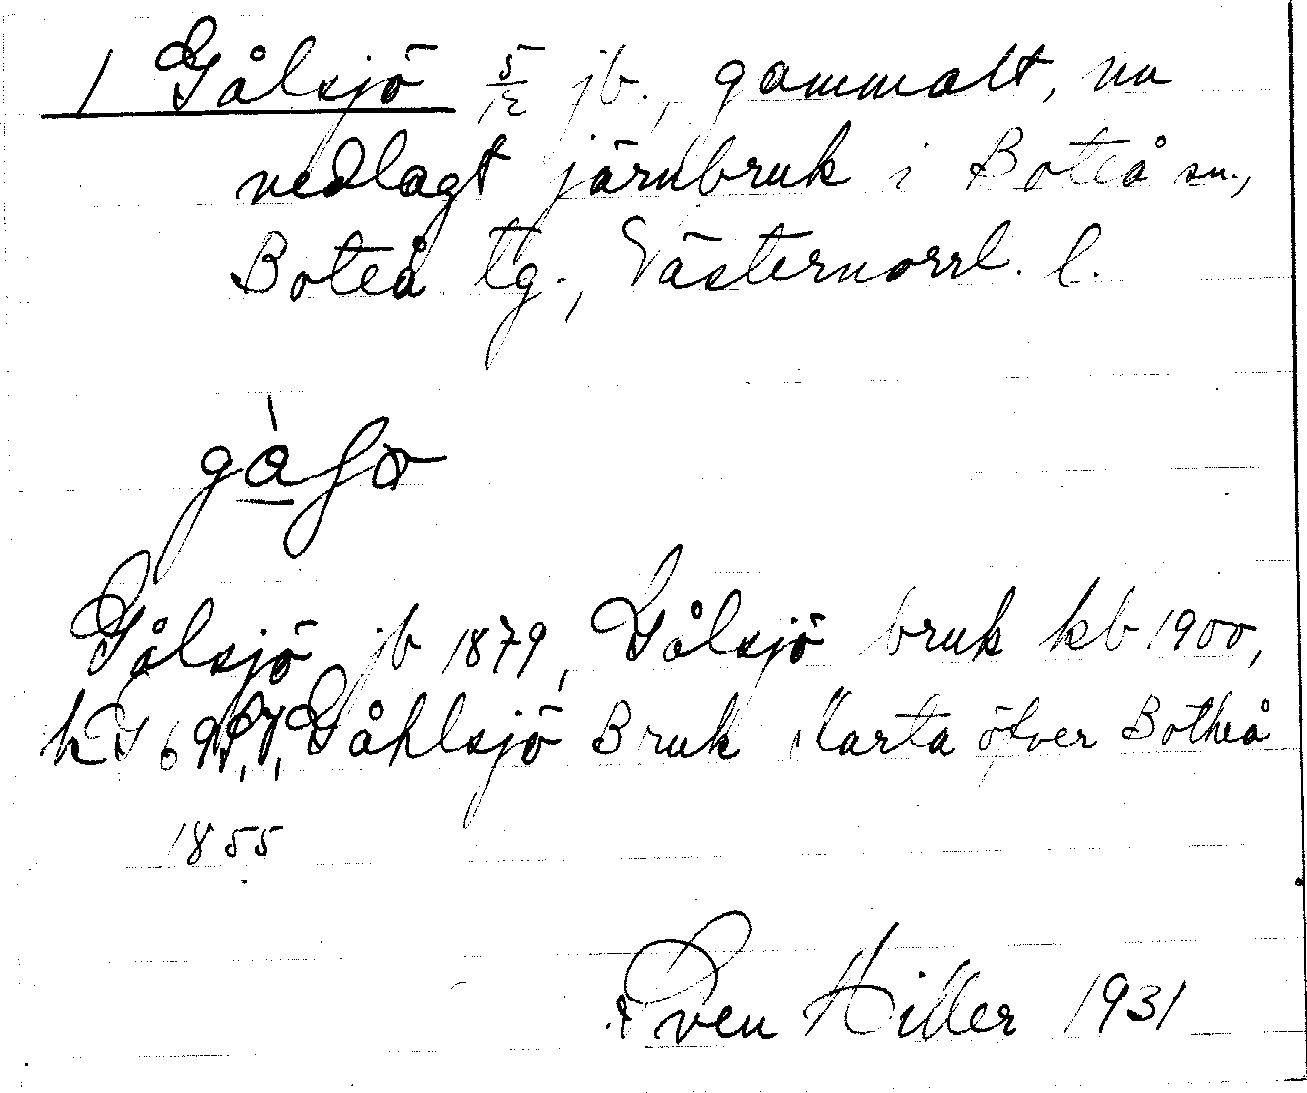 1 Gålsjö 5/12 jb., gammalt, nu
nedlagt järnbruk i Boteå sn.,
Boteå tg., Västernorrl. l.
Gålsjö jb 1879, Gålsjö bruk kb 1900,
Gåhlsjö Bruk Karta öfver Botheå
1855
Sven Hiller 1931